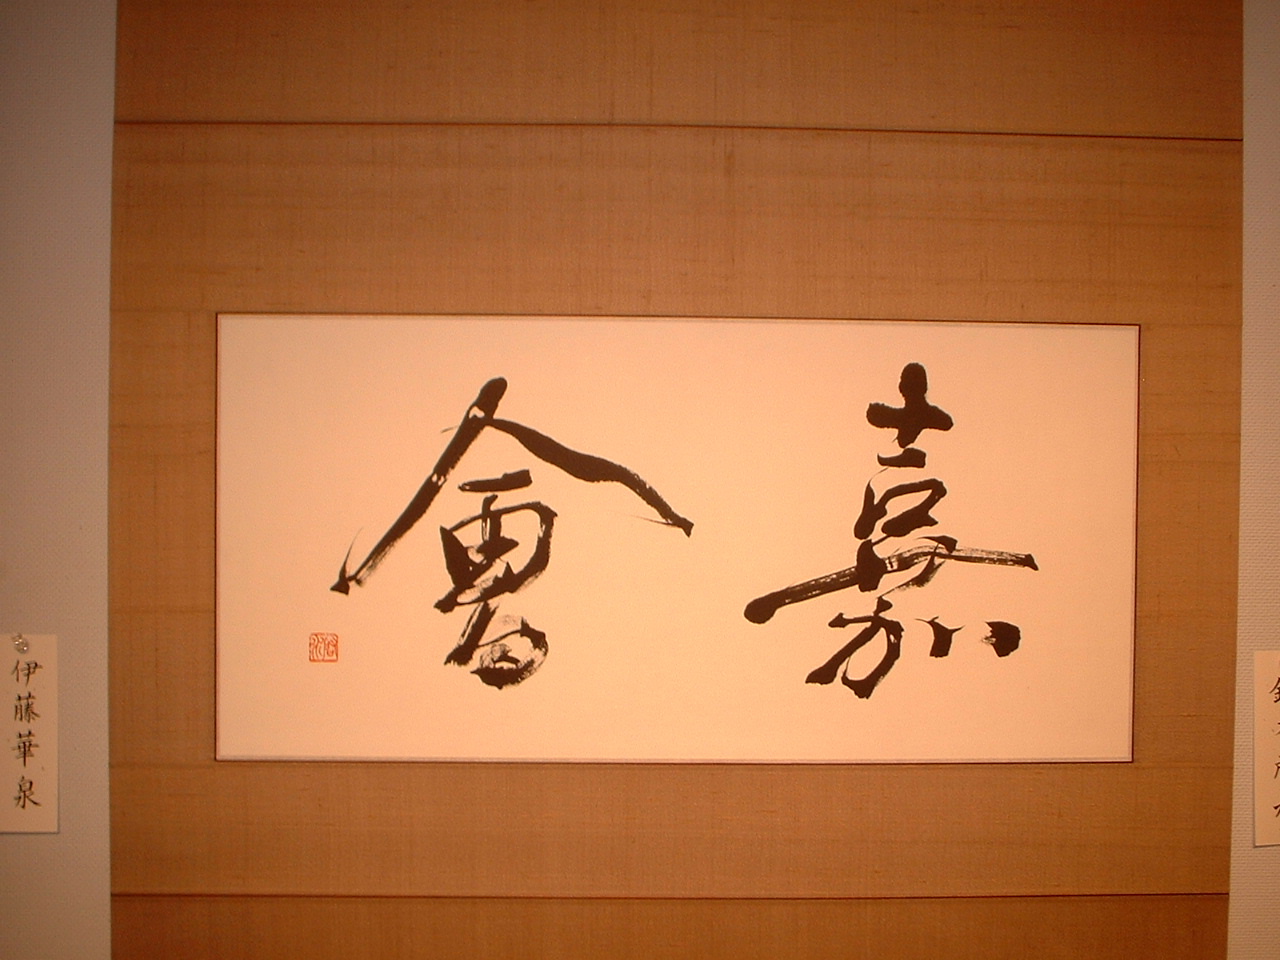 嘉會
伊藤華泉